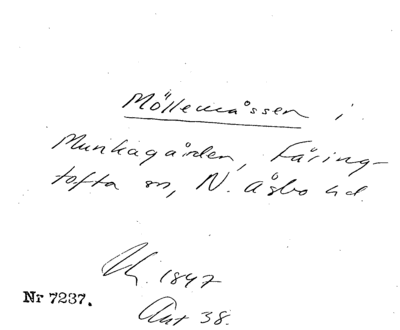 Möllemåssen i
Munkagården, Färing-
tofta sn, N. Åsbo hd.
1847
Nr 7237.
Ant 38.